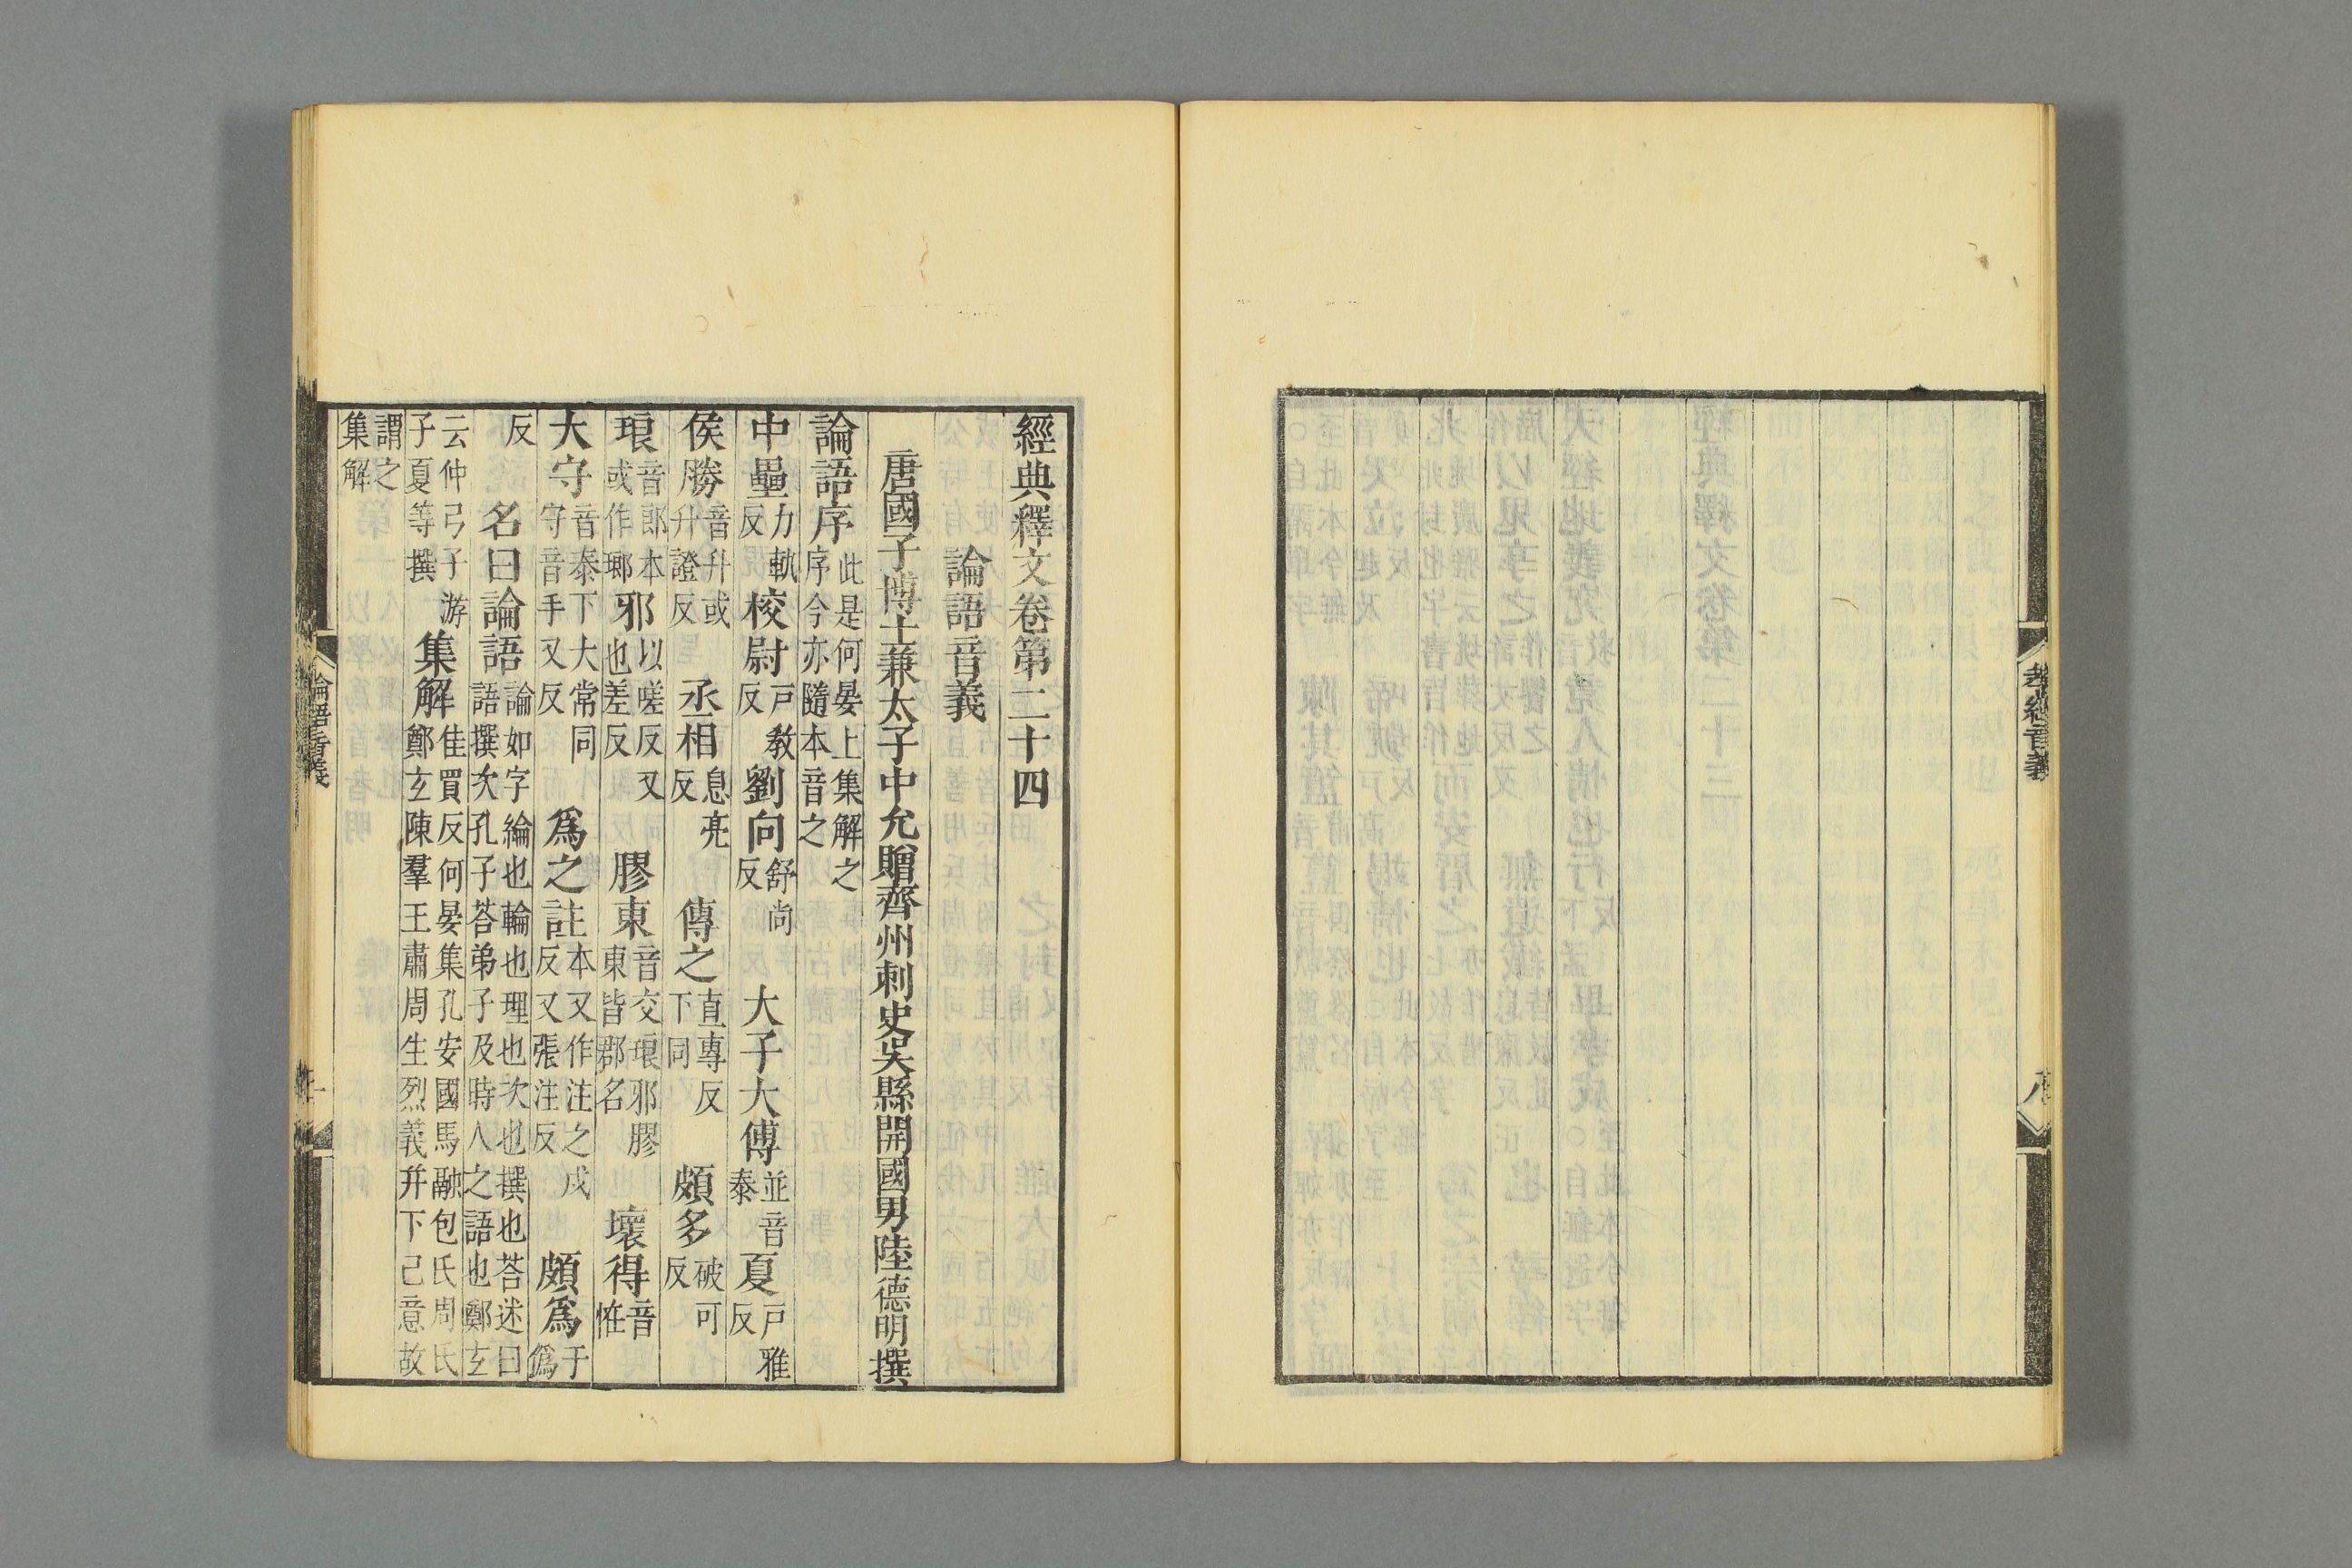 孝經音義
八
經典釋文卷第二十四
論語音義
唐國子博士兼太子中允贈齊州刺史吳縣開國男陸德明撰
論語序此是何晏上集解之序今亦隨本音之
中壘力軌反校尉戶教反劉向舒尚反大子大傅並音泰夏戶雅反
侯勝音升或升證反丞相息亮反傳之直專反下同頗多破可反
琅音郎本或作瑯邪以嗟反又也差反膠東音交琅邪膠東皆郡名壞得音恠
大守音泰下大常同守音手又反爲之註本又作注之戍反又張注反頗爲于僞
反名曰論語論如字綸也輪也理也次也撰也荅述曰語撰次孔子荅弟子及時人之語也鄭玄
云仲弓子游子夏等撰集解佳買反何晏集孔安國馬融包氏周氏鄭玄陳羣王肅周生烈義并下己意故
謂之集解
論語音義
一